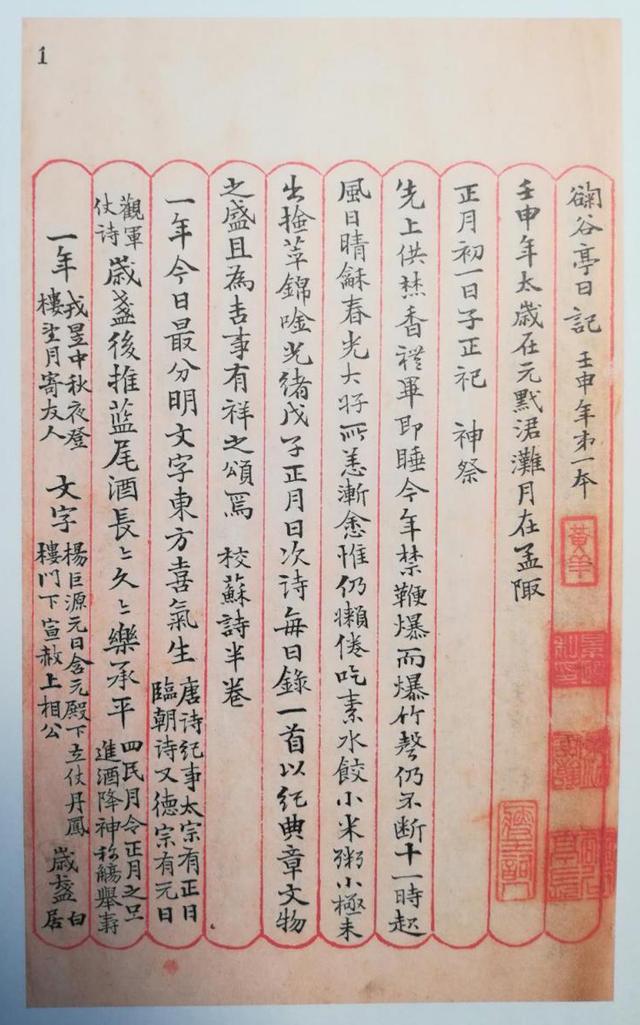 1
谷亭日記 壬申年㐧一本
黃羊
壬申年太歲在元默涒灘月在孟陬
正月初一日子正祀 神祭
先上供焚香禮畢即睡今年禁鞭爆而爆竹聲仍不斷十一時起
風日晴龢春光大好所恙漸愈惟仍懶倦吃素水餃小米粥小極未
出撿苹錦唫光緒戊子正月日次詩每日錄一首以紀典章文物
之盛且為吉事有祥之頌焉 校蘇詩半卷
一年今日最分明文字東方喜氣生 唐詩紀事太宗有正日臨朝詩又德宗有元日
觀軍仗詩 歲盞後推藍尾酒長〻久〻樂承平 四民月令正月之旦進酒降神称觴舉壽
一年 戎昱中秋夜澄樓望月寄友人 文字 楊巨源元日含元殿下立仗丹鳳樓門下宣赦上相公 歲盞 白居